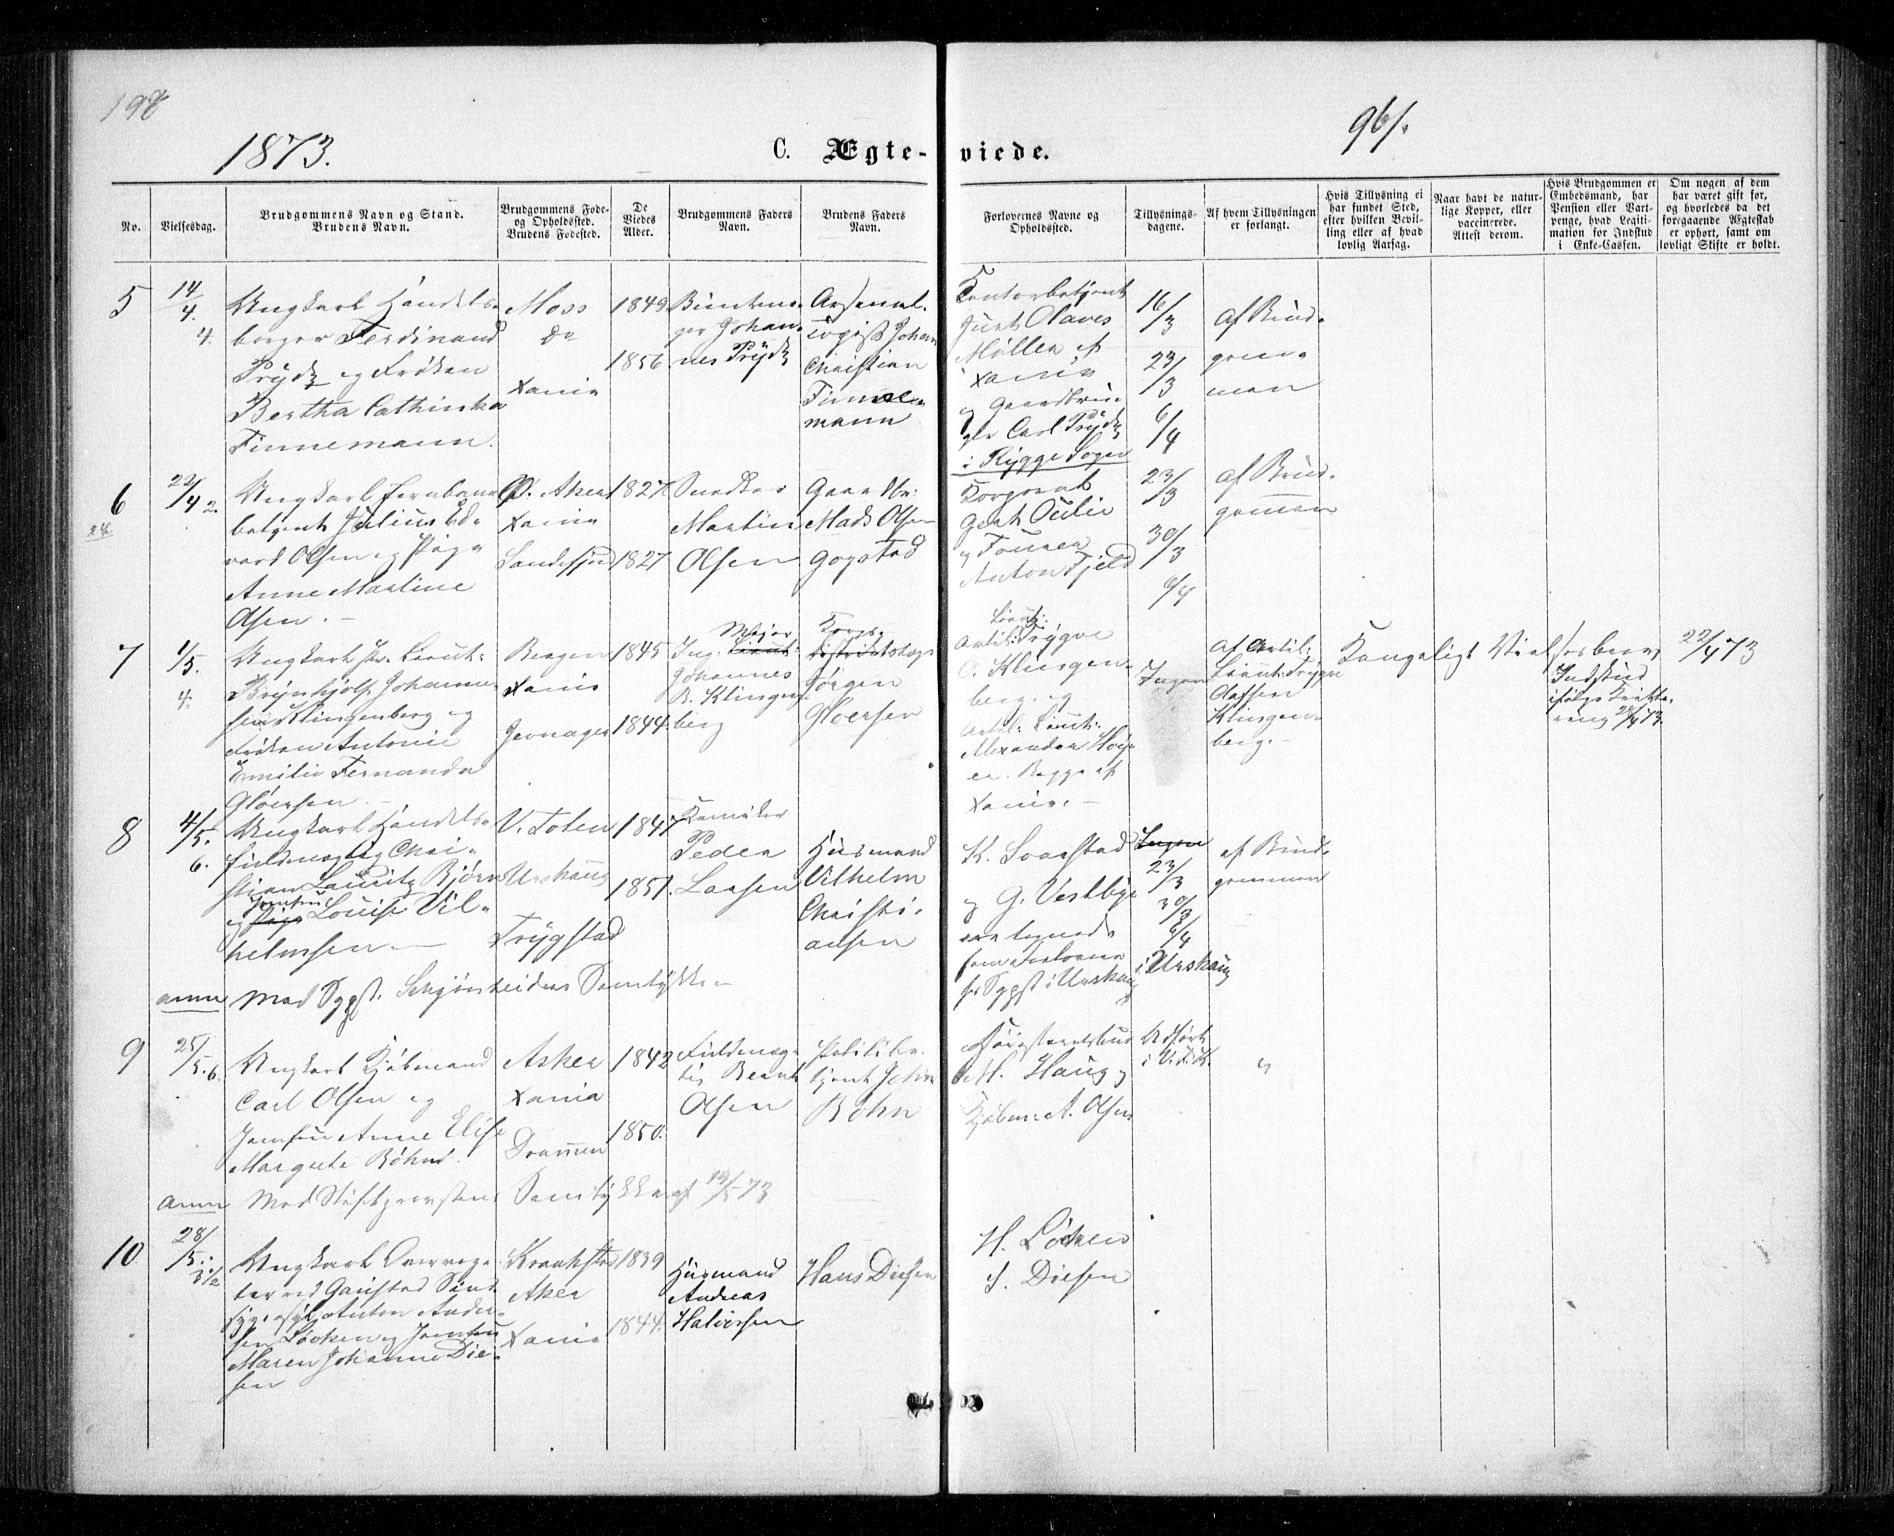 198
1873.
C. Ægteviede.
96/.
No.
Vielsesdag.
Brudgommens Navn og Stand.
Brudens Navn.
Brudgommens Føde-
og Opholdssted.
Brudens Fødested.
De
Viedes
Alder.
Brudgommens Faders
Navn.
Brudens Faders
Navn.
Forlovernes Navne og
Opholdssted.
Tillysnings-
dagene.
Af hvem Tillysningen
er forlangt.
Hvis Tillysning ei
har fundet Sted,
efter hvilken Bevil-
ling eller af hvad
lovlig Aarsag.
Naar havt de natur-
lige Kopper, eller
vaccinerede.
Attest derom.
Hvis Brudgommen er
Embedsmand, har
Pension eller Vart-
penge, hvad Legiti-
mation for Indskud
i Enke-Cassen.
Om nogen af dem
har været gift før,
og hvorledes da det
foregaaende Ægteskab
er ophørt, samt om
lovligt Skifte er holdt.
5
14/4.
4.
Ungkarl Handels-
borger Ferdinand
Prydz og Frøken
Bertha Cathinka
Finnemann.
Moss
do
Xania
1849
1856
Buntma-
ger Johan-
nes Prydz
Arsenal-
Johan
Christian
Finne-
mann
Kontorbetjent
Olaves
Møller af
Xania
og Gaardbru-
ger Carl Prydz
i Rygge Sogn
16/3
23/3
6/4
af Brud-
gom-
men
6
22/4 2.
Ungkarl Jernbane-
betjent Julius Ed-
vard Olsen og Pige
Anne Martine
Olsen. -
Ø. Aker
Xania
Sandefjord
1827
1827
Snedker
Martin
Olsen
Gaardbr.
Mads Olsen
Gogstad
og
Anton Fjeld
23/3
30/3
6/4
af Brud-
gommen
7
1/5.
4.
Ungkarl Pr. Lieut.
Brynhjolf Johanne-
sen Klingenberg og
Frøken Antonie
Emilie Fernanda
Gløersen -
Bergen
Xania
Jevnager
1845
1844.
Major
Ing.
Johannes
B. Klingen-
berg
Korps-
Jørgen
Gløersen
Lieut:
Artil: Trygve
O. Klingen-
berg og
Artil: Lieut:
Alexander
Bagge af
Xania. -
Ingen
af Artil:
Lieut: Trygve
Olafsen
Klingen-
berg. -
Kongeligt Vielsesbrev
22/4 73
Indskud
ifølge Kvitte-
ring 22/4 73.
8
4/5.
6.
Ungkarl Handels-
fuldmægtig Chri-
stian Lauritz Bjørn
og Jomfru Louise Vil-
helmsen -
V. Toten
Urskaug
Trygstad
1847
1851.
Kramker
Peder
Larsen
Husmand
Vilhelm
Christi-
ansen
K. Svarstad
og G. Vestbye
ere tegnede
som Forlovere
for Sgpst. i Urskaug
Ingen
23/3
30/3
6/4
i Urskaug
af Brud-
gommen
anm
Med Sgpst. Schjønheiders Samtykke -
9
25/5. 6.
Ungkarl Kjøbmand
Carl Olsen og
Jomfru Anne Elise
Margrete Bøhn.
Asker
Xania
Drammen
1842
1850.
Fuldmæg-
tig Bernt
Olsen
Politibe-
tjent John
Bøhn
M. Haug og
Kjøbm: A. Olsen
Udført
i V. F. K.
"
anm
Med Stiftsprovstens Samtykke af 19/5 73
10
28/5.
3 1/2
Ungkarl Overvog-
ter ved Gaustad Sind-
sygeasyl Anton Ander-
sen Løcken og Jomfru
Maren Johanne Die-
sen
Kraakstad
Aker
Xania
1839
1844.
Husmand
Andreas
Halvorsen
Hans Diesen
H. Løcken
S. Diesen